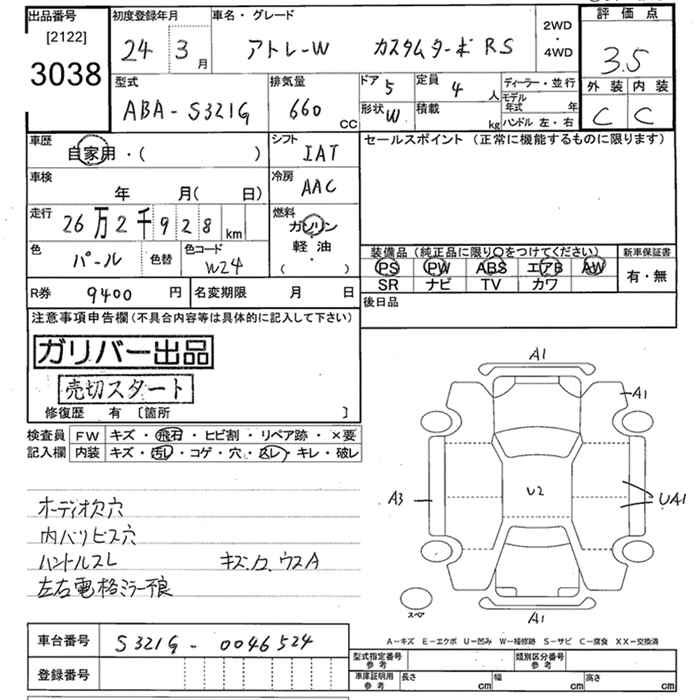 出品番号 [2122] 3038
初度登録年月 24 3月
車名・グレード アトレーW カスタムターボRS
2WD・4WD
評価点 3.5
外装 内装
C C
型式 ABA-S321G
排気量 660 CC
ドア 5
定員 4人
形状 W
積載 kg
ディーラー・並行
モデル年式 年
ハンドル 左・右
車歴 自家用・( )
シフト IAT
セールスポイント (正常に機能するものに限ります)
車検 年 月( 日)
冷房 AAC
走行 26万2千928km
燃料 ガソリン 軽油・( )
色 パール 色替
色コード W24
装備品(純正品に限り○をつけてください)
PS PW ABS エアB AW
SR ナビ TV カワ
新車保証書 有・無
R券 9400円
名変期限 月 日
後日品
注意事項申告欄(不具合内容等は具体的に記入して下さい)
ガリバー出品
売切スタート
修復歴 有 〔箇所 〕
検査員記入欄
FW キズ・飛石・ヒビ割・リペア跡・×要
内装 キズ・汚レ・コゲ・穴・スレ・キレ・破レ
オーディオ欠穴
内バリビス穴
ハンドルスレ キズ、カ、ウスA
左右電格ミラー不良
A1
A1
A3
U2
UA1
スペア
A1
A-キズ E-エクボ U-凹み W-補修跡 S-サビ C-腐食 XX-交換済
車台番号 S321G-0046524
登録番号
型式指定番号 参考
類別区分番号 参考
車庫証明用 参考 長さ cm 幅 cm 高さ cm